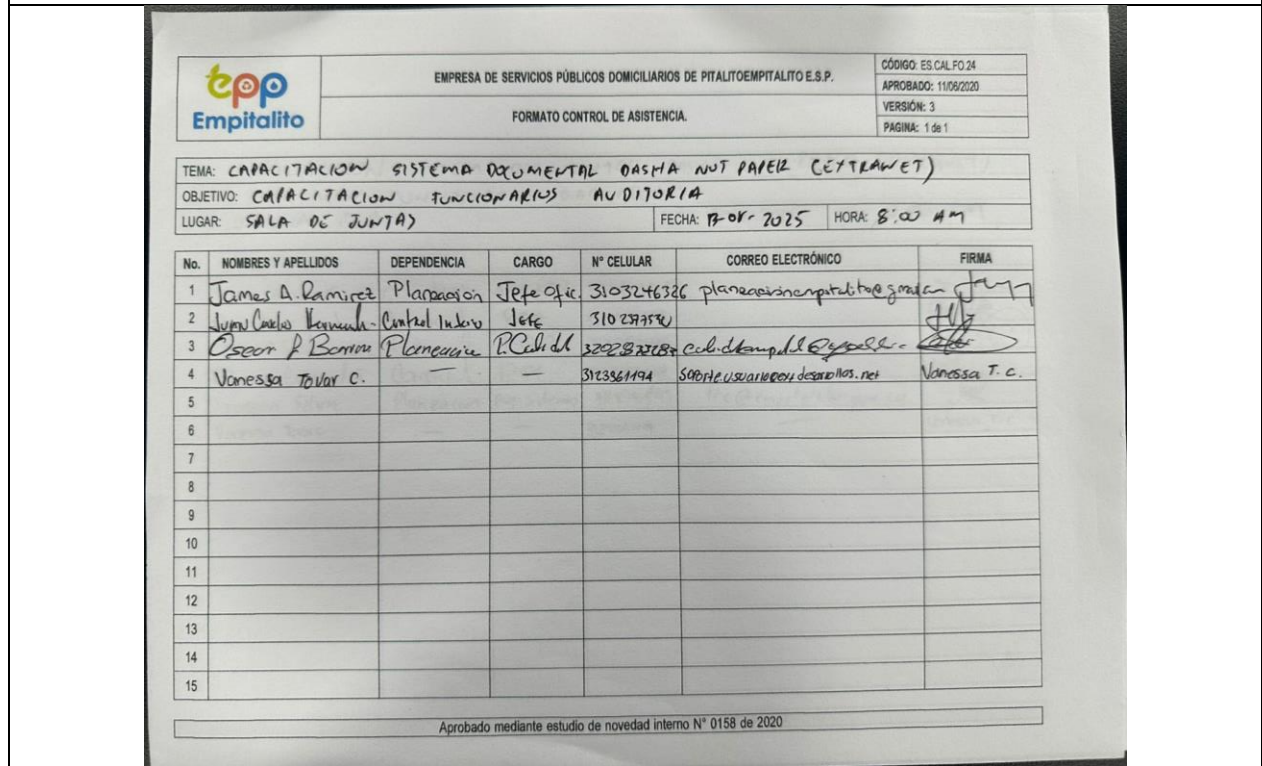 epp
Empitalito
EMPRESA DE SERVICIOS PÚBLICOS DOMICILIARIOS DE PITALITOEMPITALITO E.S.P.
FORMATO CONTROL DE ASISTENCIA.
CÓDIGO: ES.CAL.FO.24
APROBADO: 11/06/2020
VERSIÓN: 3
PAGINA: 1 de 1
TEMA: CAPACITACION SISTEMA DOCUMENTAL DASHA NOT PAPER (EXTRANET)
OBJETIVO: CAPACITACION FUNCIONARIOS AUDITORIA
LUGAR: SALA DE JUNTAS FECHA: 2025 HORA: 8:00 AM
No. NOMBRES Y APELLIDOS DEPENDENCIA CARGO N° CELULAR CORREO ELECTRÓNICO FIRMA
1 James A. Ramirez Planeacion Jefe Ofic. 3103246326
2 Juan Carlos Control Interno Jefe
3 Oscar Planeacion
4 Vanessa Tovar C. — — 3123961194 Vanessa T. C.
5
6
7
8
9
10
11
12
13
14
15
Aprobado mediante estudio de novedad interno N° 0158 de 2020